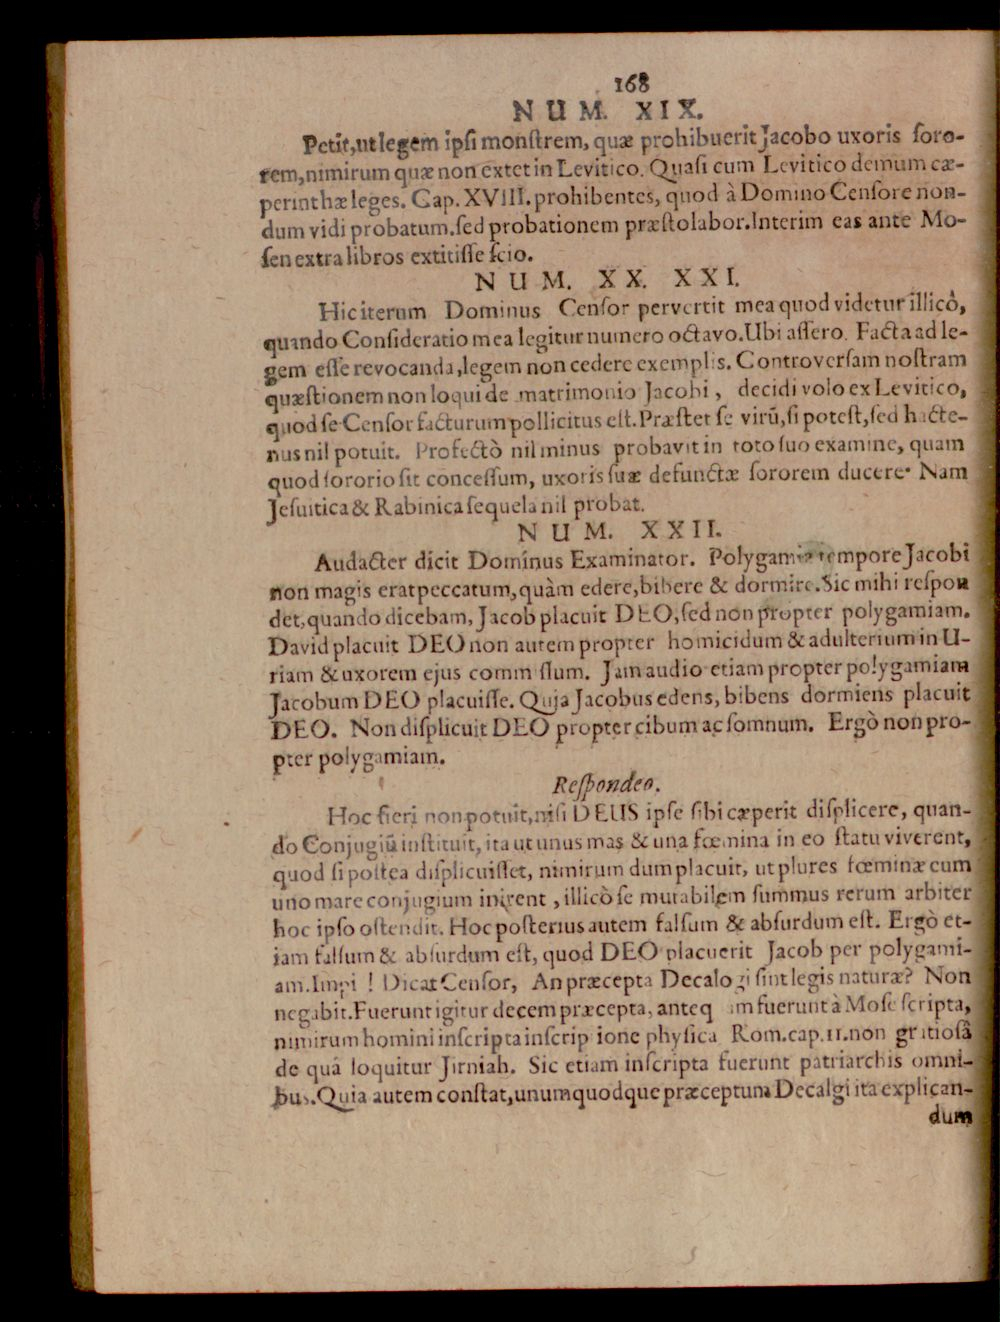 168
NUM. XIX.
Petit, ut legem ipsi monſtrem, quæ prohibuerit Jacobo uxoris ſoro-
rem, nimirum quæ non extet in Levitico. Quaſi cum Levitico demum cæ-
perint hæ leges. Cap. XVIII. prohibentes, quod à Domino Cenſore non-
dum vidi probatum. ſed probationem præſtolabor. Interim eas ante Mo-
ſen extra libros extitiſſe ſcio.
NUM. XX. XXI.
Hic iterum Dominus Cenſor pervertit mea quod videtur illicô,
quando Conſideratio mea legitur numero octavo. Ubi aſſero. Facta ad le-
gem eſſe revocanda, legem non cedere exemplis. Controverſam noſtram
quæſtionem non loqui de matrimonio Jacobi, decidi volo ex Levitico,
quod ſe Cenſor facturum pollicitus eſt. Præſtet ſe virũ, ſi poteſt, ſed hacte-
nus nil potuit. Profectò nil minus probavit in toto ſuo examine, quam
quod ſororio ſit conceſſum, uxoris ſuæ defunctæ ſororem ducere. Nam
Jeſuitica & Rabinica ſequela nil probat.
NUM. XXII.
Audacter dicit Dominus Examinator. Polygamia tempore Jacobi
non magis erat peccatum, quàm edere, bibere & dormire. Sic mihi reſpon
det, quando dicebam, Jacob placuit DEO, ſed non propter polygamiam.
David placuit DEO non autem propter homicidum & adulterium in U-
riam & uxorem ejus comm ſſum. Jam audio etiam propter polygamiam
Jacobum DEO placuiſſe. Quja Jacobus edens, bibens dormiens placuit
DEO. Non diſplicuit DEO propter cibum ac ſomnum. Ergò non pro-
pter polygamiam.
Reſpondeo.
Hoc fieri non potuit, niſi DEUS ipſe ſibi cæperit diſplicere, quan-
do Conjugiũ inſtituit, ita ut unus mas & una fœmina in eo ſtatu viverent,
quod ſi poſtea diſplicuiſſet, nimirum dum placuit, ut plures fœminæ cum
uno mare conjugium inirent, illicò ſe mutabilem ſummus rerum arbiter
hoc ipſo oſtendit. Hoc poſterius autem falſum & abſurdum eſt. Ergò et-
iam falſum & abſurdum eſt, quod DEO placuerit Jacob per polygami-
am. Impi ! Dicat Cenſor, An præcepta Decalogi ſint legis naturæ? Non
negabit. Fuerunt igitur decem præcepta, anteq am fuerunt à Moſe ſcripta,
nimirum homini inſcripta inſcrip ione phyſica Rom. cap. 11. non gratioſâ
de quâ loquitur Jirniah. Sic etiam inſcripta fuerunt patriarchis omni-
bus. Quia autem conſtat, unumquodque præceptum Decalgi ita explican-
dum